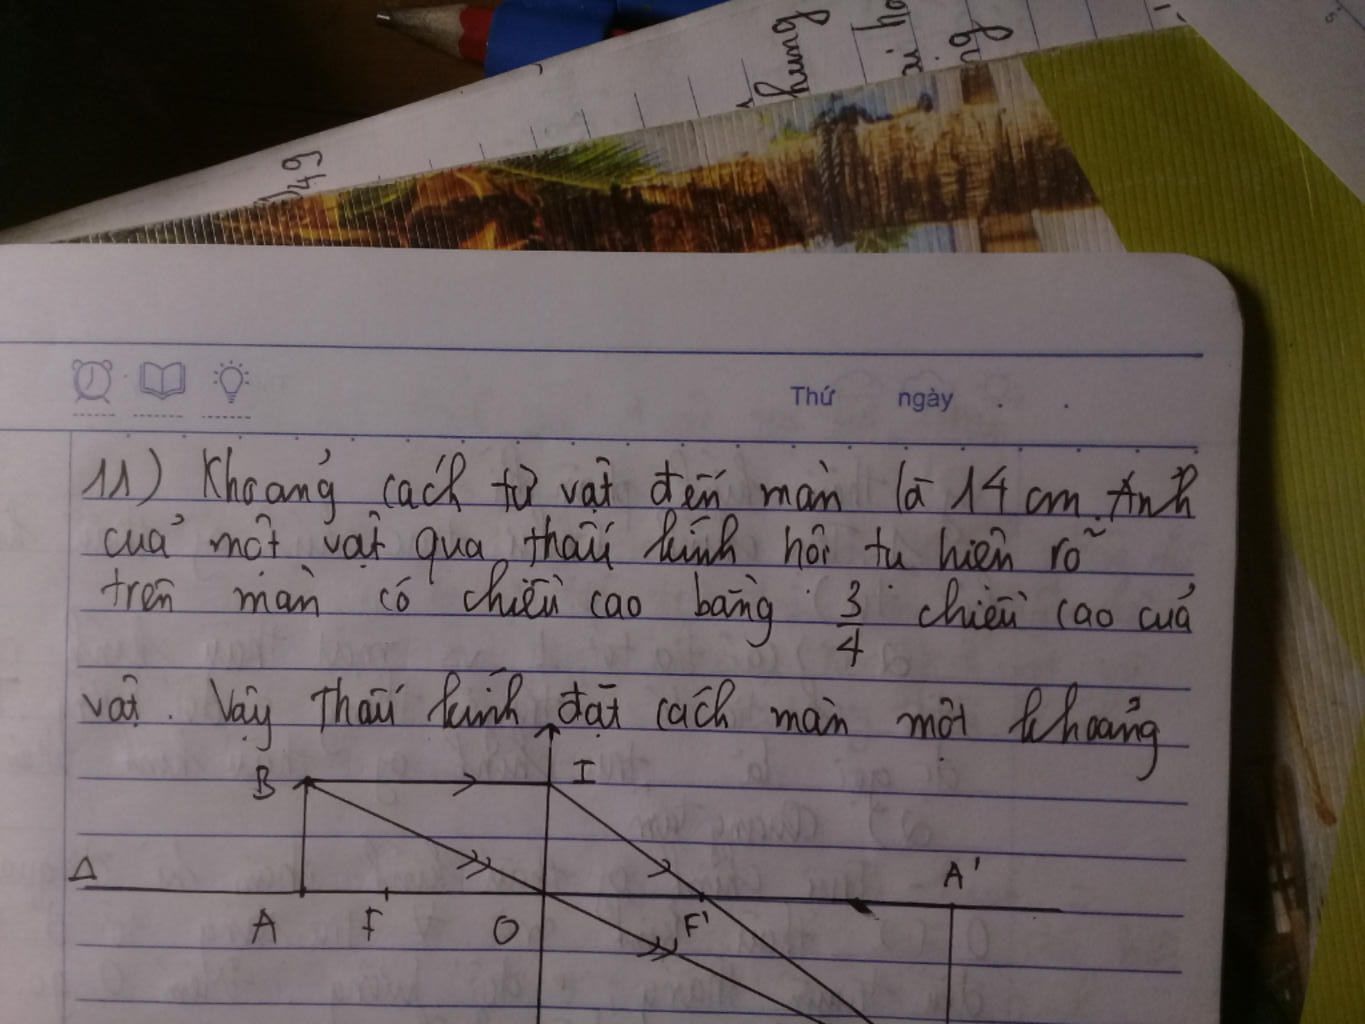 hung
ai ho
ng
49
Thứ ngày . .
11) Khoảng cách từ vật đến màn là 14 cm. Ảnh
của một vật qua thấu kính hội tụ hiện rõ
trên màn có chiều cao bằng 3/4 chiều cao của
vật. Vậy thấu kính đặt cách màn một khoảng
B I
Δ A'
A F O F'